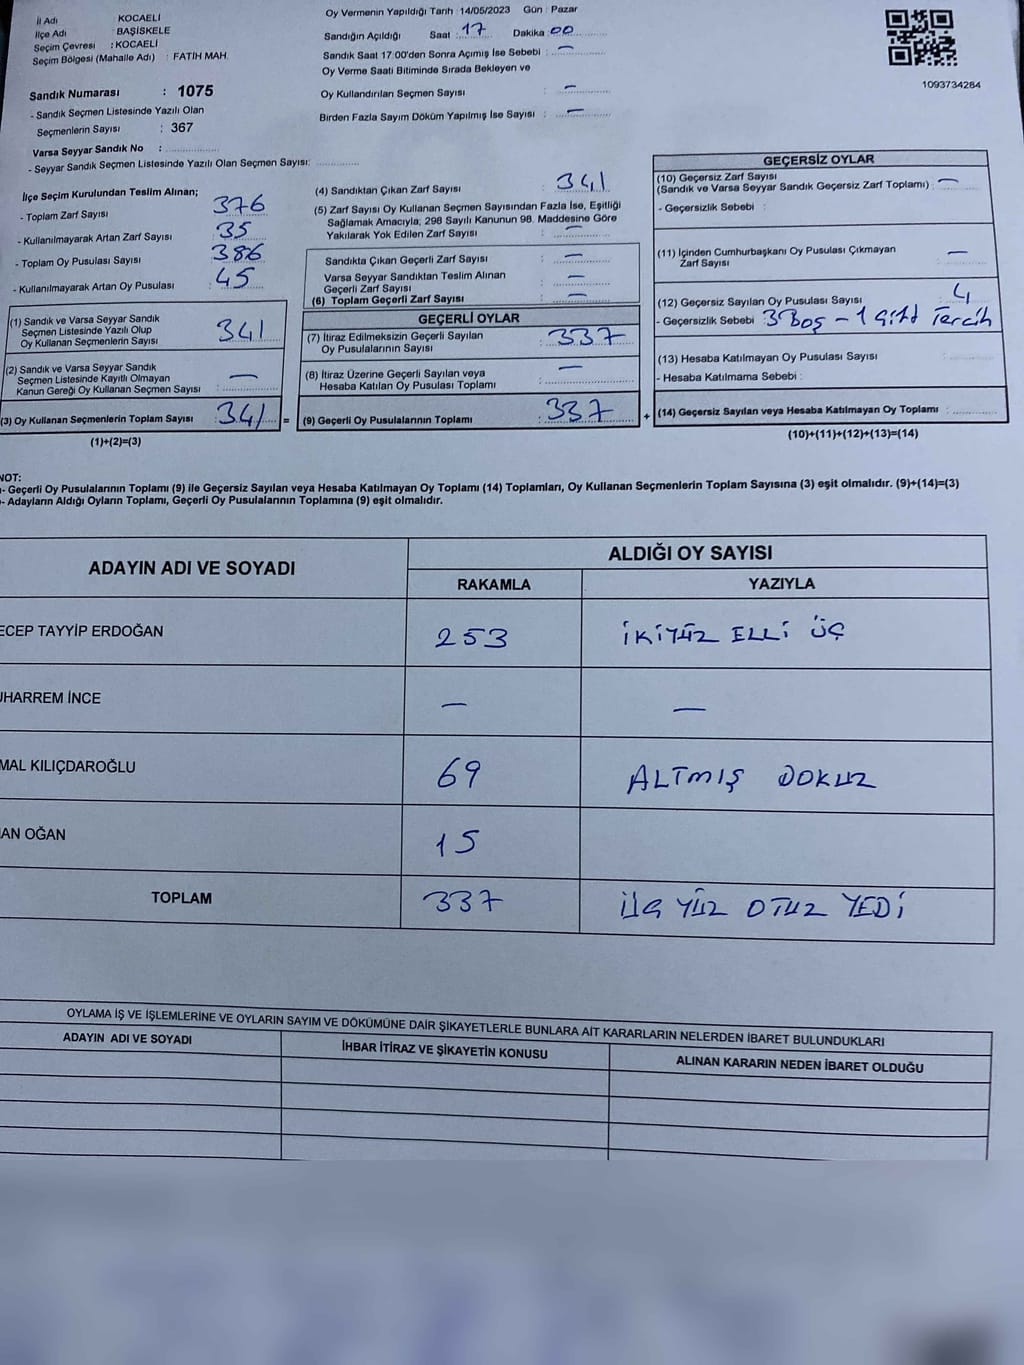 İl Adı KOCAELİ
İlçe Adı BAŞİSKELE
Seçim Çevresi : KOCAELİ
Seçim Bölgesi (Mahalle Adı) : FATİH MAH.
Sandık Numarası : 1075
- Sandık Seçmen Listesinde Yazılı Olan
Seçmenlerin Sayısı : 367
Varsa Seyyar Sandık No :
- Seyyar Sandık Seçmen Listesinde Yazılı Olan Seçmen Sayısı:
Oy Vermenin Yapıldığı Tarih : 14/05/2023 Gün : Pazar
Sandığın Açıldığı Saat : 17 Dakika 00
Sandık Saat 17:00'den Sonra Açılmış İse Sebebi : —
Oy Verme Saati Bitiminde Sırada Bekleyen ve
Oy Kullandırılan Seçmen Sayısı : —
Birden Fazla Sayım Döküm Yapılmış İse Sayısı : —
1093734284
İlçe Seçim Kurulundan Teslim Alınan;
- Toplam Zarf Sayısı 376
- Kullanılmayarak Artan Zarf Sayısı 35
- Toplam Oy Pusulası Sayısı 386
- Kullanılmayarak Artan Oy Pusulası : 45
(1) Sandık ve Varsa Seyyar Sandık
Seçmen Listesinde Yazılı Olup
Oy Kullanan Seçmenlerin Sayısı 341
(2) Sandık ve Varsa Seyyar Sandık
Seçmen Listesinde Kayıtlı Olmayan
Kanun Gereği Oy Kullanan Seçmen Sayısı : —
(3) Oy Kullanan Seçmenlerin Toplam Sayısı 341 =
(1)+(2)=(3)
(4) Sandıktan Çıkan Zarf Sayısı : 341
(5) Zarf Sayısı Oy Kullanan Seçmen Sayısından Fazla İse, Eşitliği
Sağlamak Amacıyla; 298 Sayılı Kanunun 98. Maddesine Göre
Yakılarak Yok Edilen Zarf Sayısı : —
Sandıkta Çıkan Geçerli Zarf Sayısı : —
Varsa Seyyar Sandıktan Teslim Alınan
Geçerli Zarf Sayısı : —
(6) Toplam Geçerli Zarf Sayısı : —
GEÇERLİ OYLAR
(7) İtiraz Edilmeksizin Geçerli Sayılan
Oy Pusulalarının Sayısı : 337
(8) İtiraz Üzerine Geçerli Sayılan veya
Hesaba Katılan Oy Pusulası Toplamı : —
(9) Geçerli Oy Pusulalarının Toplamı : 337 +
GEÇERSİZ OYLAR
(10) Geçersiz Zarf Sayısı
(Sandık ve Varsa Seyyar Sandık Geçersiz Zarf Toplamı) : —
- Geçersizlik Sebebi :
(11) İçinden Cumhurbaşkanı Oy Pusulası Çıkmayan
Zarf Sayısı —
(12) Geçersiz Sayılan Oy Pusulası Sayısı 4
- Geçersizlik Sebebi 3 Boş - 1 Çift Tercih
(13) Hesaba Katılmayan Oy Pusulası Sayısı
- Hesaba Katılmama Sebebi :
(14) Geçersiz Sayılan veya Hesaba Katılmayan Oy Toplamı :
(10)+(11)+(12)+(13)=(14)
NOT:
- Geçerli Oy Pusulalarının Toplamı (9) ile Geçersiz Sayılan veya Hesaba Katılmayan Oy Toplamı (14) Toplamları, Oy Kullanan Seçmenlerin Toplam Sayısına (3) eşit olmalıdır. (9)+(14)=(3)
- Adayların Aldığı Oyların Toplamı, Geçerli Oy Pusulalarının Toplamına (9) eşit olmalıdır.
ADAYIN ADI VE SOYADI ALDIĞI OY SAYISI
RAKAMLA YAZIYLA
ECEP TAYYİP ERDOĞAN 253 İKİYÜZ ELLİ ÜÇ
UHARREM İNCE — —
MAL KILIÇDAROĞLU 69 ALTMIŞ DOKUZ
AN OĞAN 15
TOPLAM 337 ÜÇ YÜZ OTUZ YEDİ
OYLAMA İŞ VE İŞLEMLERİNE VE OYLARIN SAYIM VE DÖKÜMÜNE DAİR ŞİKAYETLERLE BUNLARA AİT KARARLARIN NELERDEN İBARET BULUNDUKLARI
ADAYIN ADI VE SOYADI İHBAR İTİRAZ VE ŞİKAYETİN KONUSU ALINAN KARARIN NEDEN İBARET OLDUĞU